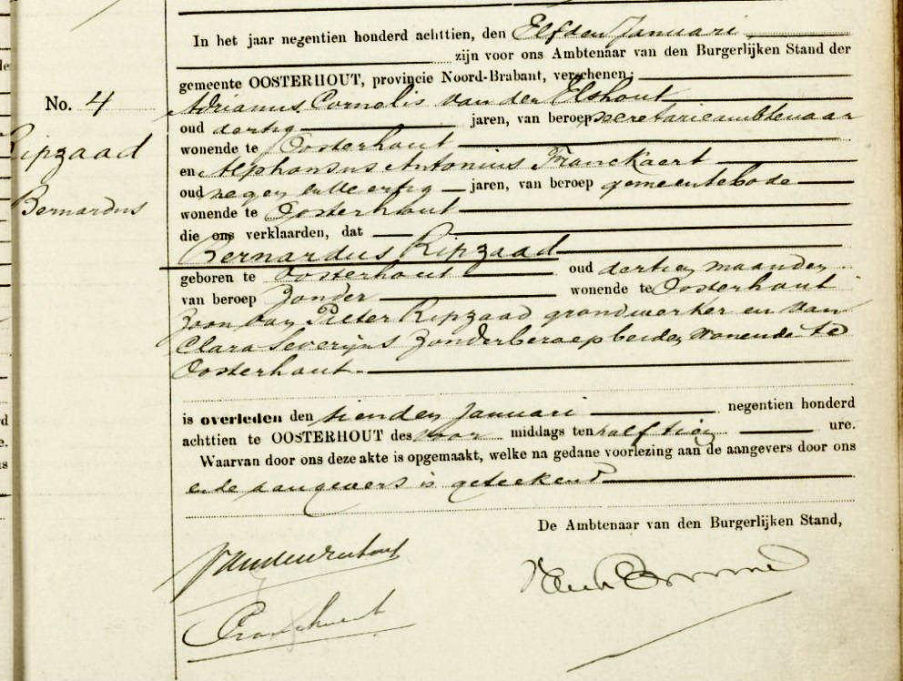 In het jaar negentien honderd achttien, den Elfden Januari
zijn voor ons Ambtenaar van den Burgerlijken Stand der
gemeente OOSTERHOUT, provincie Noord-Brabant, verschenen:
No. 4
Adrianus Cornelis van der Elshout
oud dertig jaren, van beroep secretarieambtenaar
Ripzaad
wonende te Oosterhout
en Alphonsus Antonius Franckaert
oud negen en veertig jaren, van beroep gemeentebode
Bernardus
wonende te Oosterhout
die ons verklaarden, dat
Bernardus Ripzaad
geboren te Oosterhout oud dertien maanden
van beroep Zonder wonende te Oosterhout
Zoon van Pieter Ripzaad grondwerker en van
Clara Severijns Zonder beroep beiden wonende te
Oosterhout
is overleden den tienden Januari negentien honderd
achttien te OOSTERHOUT des voor middags ten half tien ure.
Waarvan door ons deze akte is opgemaakt, welke na gedane voorlezing aan de aangevers door ons
en de aangevers is geteekend
De Ambtenaar van den Burgerlijken Stand,